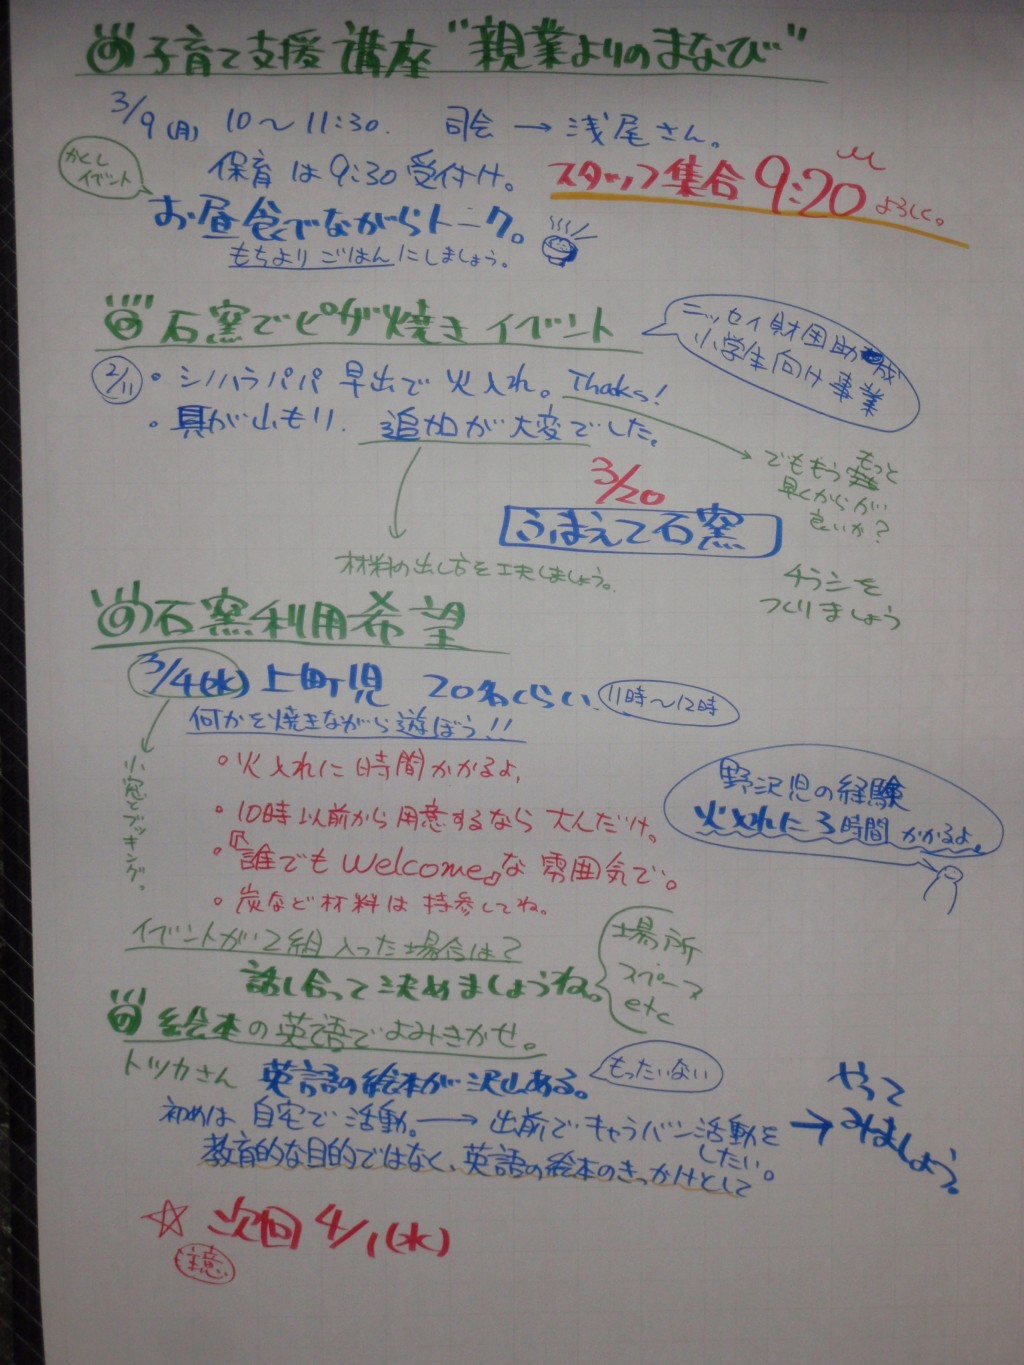 子育て支援講座"親業よりのまなび"
3/9(月) 10〜11:30. 司会→浅尾さん。
かくしイベント
保育は9:30受付け。
スタッフ集合9:20よろしく。
お昼食べながらトーク。
もちよりごはんにしましょう。
石窯でピザ焼きイベント
ニッセイ財団助成
小学生向け事業
2/11 ・シノハラパパ 早出で火入れ。Thaks!
・具が山もり. 追加が大変でした。
でももうもっと
早くからが
良いか?
3/20
ふまえて石窯
材料の出し方を工夫しましょう。
チラシを
つくりましょう
石窯利用希望
3/4(水) 上町児 20名くらい. 11時〜12時
何かを焼きながら遊ぼう!!
小窓とブッキング。
・火入れに時間かかるよ.
・10時以前から用意するなら大んだけ。
・『誰でもwelcome』な雰囲気で。
・炭など材料は持参してね。
野沢児の経験
火入れに3時間かかるよ。
イベントが2組入った場合は?
話し合って決めましょうね。
場所
スペース
etc
絵本の英語でよみきかせ。
トツカさん 英語の絵本が沢山ある。
もったいない
初めは自宅で活動。→出前でキャラバン活動をしたい。
→やってみましょう。
教育的な目的ではなく、英語の絵本のきっかけとして
☆次回4/1(水)
注意